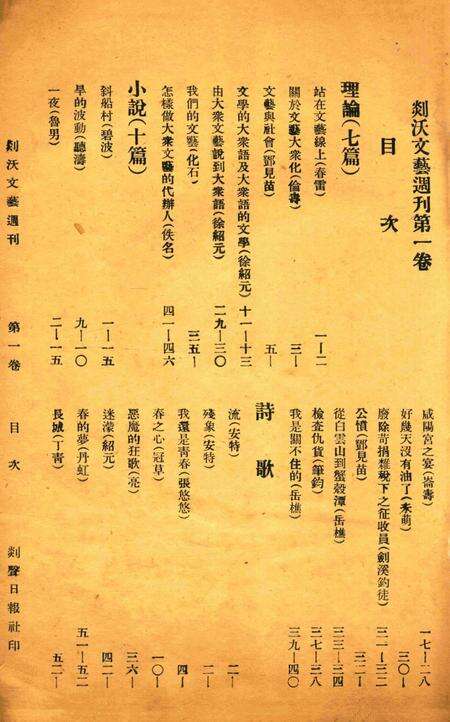 剡沃文藝週刊第一卷
目次
理論(七篇)
站在文藝線上(春雷) 一—二
關於文藝大衆化(倫壽) 三—
文藝與社會(鄧見苗) 五—
文學的大衆語及大衆語的文學(徐紹元) 十一—十三
由大衆文藝說到大衆語(徐紹元) 二九—三〇
我們的文藝(化石) 三五—
怎樣做大衆文藝的代辦人(佚名) 四一—四六
小說(十篇)
斜船村(碧波) 一—一五
旱的波動(聽濤) 九—一〇
一夜(魯男) 二—一五
咸陽宮之宴(崙壽) 一七—二八
好幾天沒有油了(禾萌) 三〇—
廢除苛捐雜稅下之征收員(劍溪釣徒) 三一—三二
公憤(鄧見苗) 三二—
從白雲山到蟹殼潭(岳樵) 三三—三四
檢查仇貨(筆鈞) 三七—三八
我是關不住的(岳樵) 三九—四〇
詩歌
流(安特) 二—
殘象(安特) 二—
我還是靑春(張悠悠) 四—
春之心(冠草) 一〇—
惡魔的狂歌(亮) 三六—
迷濛(紹元) 四二—
春的夢(丹虹) 五一—五二
長城(丁靑) 五二—
剡沃文藝週刊 第一卷 目次 剡聲日報社印